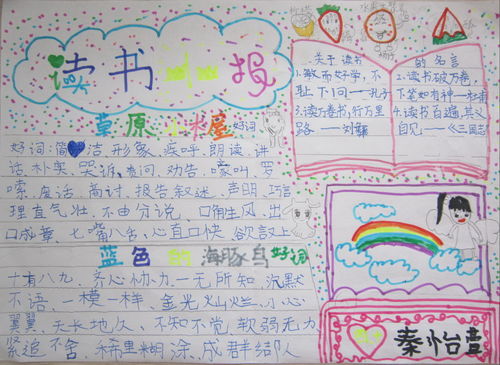 读书小报
草原小木屋 好词
好词:简洁、形象、疾呼、朗读、讲
话、朴实、哭诉、责问、劝告、嚎叫、罗
嗦、废话、商讨、报告、叙述、声明、巧言
理直气壮、不由分说、口角生风、出
口成章、七嘴八舌、心直口快、欲言又止
蓝色的海豚岛好词
十有八九、齐心协力、一无所知、沉默
不语、一模一样、金光灿烂、小心
翼翼、天长地久、不知不觉、软弱无力
紧追不舍、稀里糊涂、成群结队
关于读书
1.敏而好学,不
耻下问——孔子
3.读万卷书,行万里
路——刘彝
的名言
2.读书破万卷,
下笔如有神——杜甫
4.读书百遍,其义
自见——《三国志》
秦怡萱